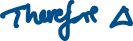 Therefore △